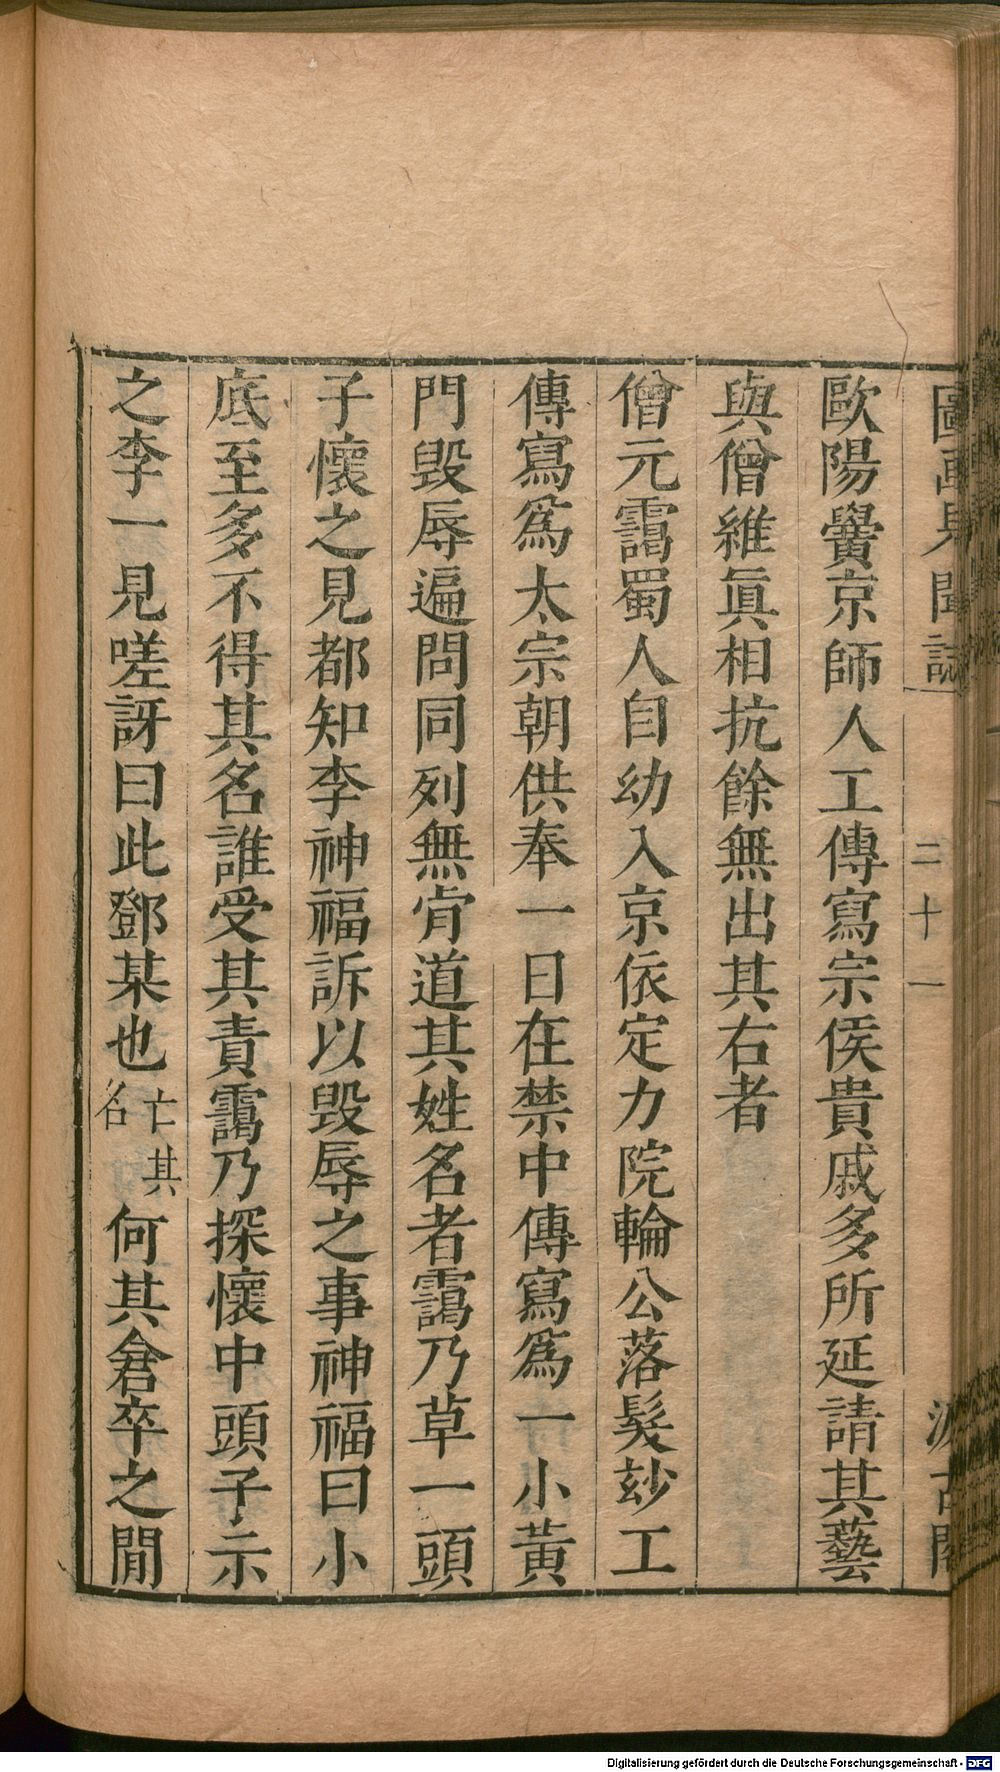 圖畫見聞誌 二十一 汲古閣
歐陽黌京師人工傳寫宗侯貴戚多所延請其藝
與僧維眞相抗餘無出其右者
僧元靄蜀人自幼入京依定力院輪公落髮玅工
傳寫爲太宗朝供奉一日在禁中傳寫爲一小黃
門毀辱遍問同列無肯道其姓名者靄乃草一頭
子懷之見都知李神福訴以毀辱之事神福曰小
底至多不得其名誰受其責靄乃探懷中頭子示
之李一見嗟訝曰此鄧某也亡其名何其倉卒之閒
Digitalisierung gefördert durch die Deutsche Forschungsgemeinschaft - DFG